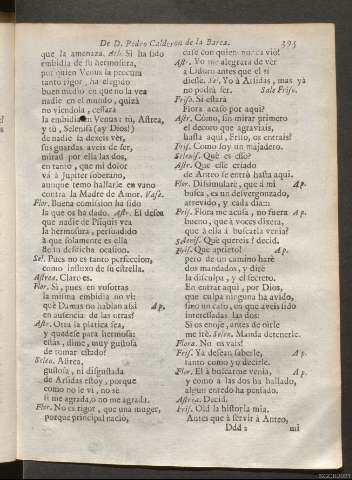 De D. Pedro Calderon de la Barca. 395
que la amenaza. Ast. Si ha sido
embidia de su hermosura,
por quien Venus la procura
tanto rigor, ha elegido
buen medio en que no la vea
nadie en el mundo, quizà
no viendola, cessarà
la embidia en Venus: tù, Astrea,
y tù, Selenisa (ay Dios!)
de nadie la dexeis vèr,
sus guardas aveis de ser,
mirad por ella las dos,
en tanto, que mi dolor
và à Jupiter soberano,
aunque temo hallarle en vano
contra la Madre de Amor. Vase.
Flor. Buena comission ha sido
la que os ha dado. Astr. El deseo
que nadie de Psiquis vea
la hermosura, persuadido
à que solamente es ella
de su desdicha ocasion.
Sel. Pues no es tanto perfeccion,
como influxo de su estrella.
Astrea. Claro es.
Flor. Si, pues en vosotras
la misma embidia no vè:
què Damas no hablan assi Ap.
en ausencia de las otras!
Astr. Otra la platica sea,
y quedese para hermosa:
estàs, dime, muy gustosa
de tomar estado?
Selen. Astrea,
gustosa, ni disgustada
de Arsidas estoy, porque
como no le vi, no sè
si me agrada, ò no me agrada.
Flor. No es rigor, que una muger,
porque principal naciò,
case con quien nunca viò!
Astr. Yo me alegrara de vèr
à Lidoro antes que el sì
diesse. Sel. Yo à Arsidas, mas ya
no podrà ser. Sale Friso.
Friso. Si estarà
Flora acaso por aqui?
Astr. Còmo, sin mirar primero
el decoro que agraviais,
hasta aqui, Friso, os entrais?
Fris. Como soy un majadero.
Selenis. Què es esso?
Astr. Que esse criado
de Anteo se entrò hasta aqui.
Flor. Dissimularè, que à mi Ap.
busca, es un desvergonzado,
atrevido, y cada dia:::
Fris. Flora me acusa, no fuera Ap.
bueno, que à voces dixera,
que à ella à buscarla venia?
Selenis. Què quereis? decid.
Fris. Què aprieto! Ap.
pero de un camino harè
dos mandados, y dirè
la disculpa, y el secreto.
En entrar aqui, por Dios,
que culpa ninguna ha avido,
sino un caso, en que aveis sido
interessadas las dos:
Si os enoje, antes de oirle
me irè. Selen. Manda detenerle.
Flora. No os vais?
Fris. Ya desean saberle, Ap.
tanto como yo decirle.
Flor. El à buscarme venia, Ap.
y como à las dos ha hallado,
algun enredo ha pensado.
Astrea. Decid.
Fris. Oid la historia mia.
Antes que à servir à Anteo,
Ddd 2 mi